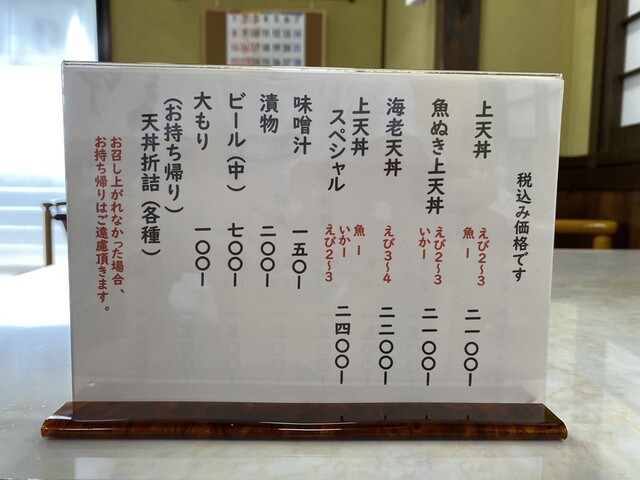 税込み価格です
上天丼 えび2〜3 魚一 二一〇〇ー
魚ぬき上天丼 えび2〜3 いかー 二一〇〇ー
海老天丼 えび3〜4 二二〇〇ー
上天丼
スペシャル 魚一 いかー えび2〜3 二四〇〇ー
味噌汁 一五〇ー
漬物 二〇〇ー
ビール(中) 七〇〇ー
大もり 一〇〇ー
(お持ち帰り)
天丼折詰(各種)
お召し上がれなかった場合、
お持ち帰りはご遠慮頂きます。